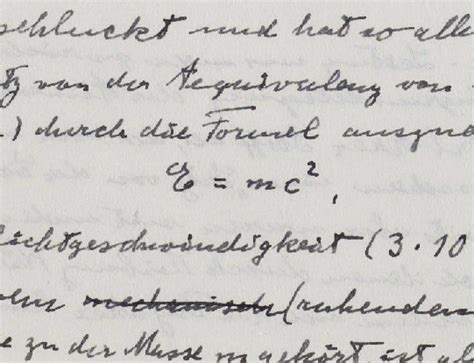 schluckt und hat so alle
tz von der Aequivalenz von
.) durch die Formel ausged
E = mc²,
Lichtgeschwindigkeit (3.10
mechanisch (ruhenden
e zu der Masse m gehört ist